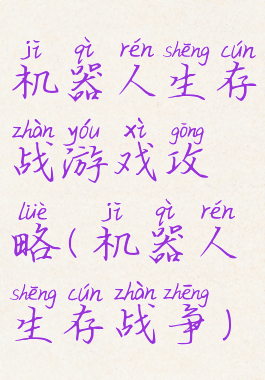 jī qì rén shēng cún
机器人生存
zhàn yóu xì gōng
战游戏攻
lüè jī qì rén
略(机器人
shēng cún zhàn zhēng
生存战争)